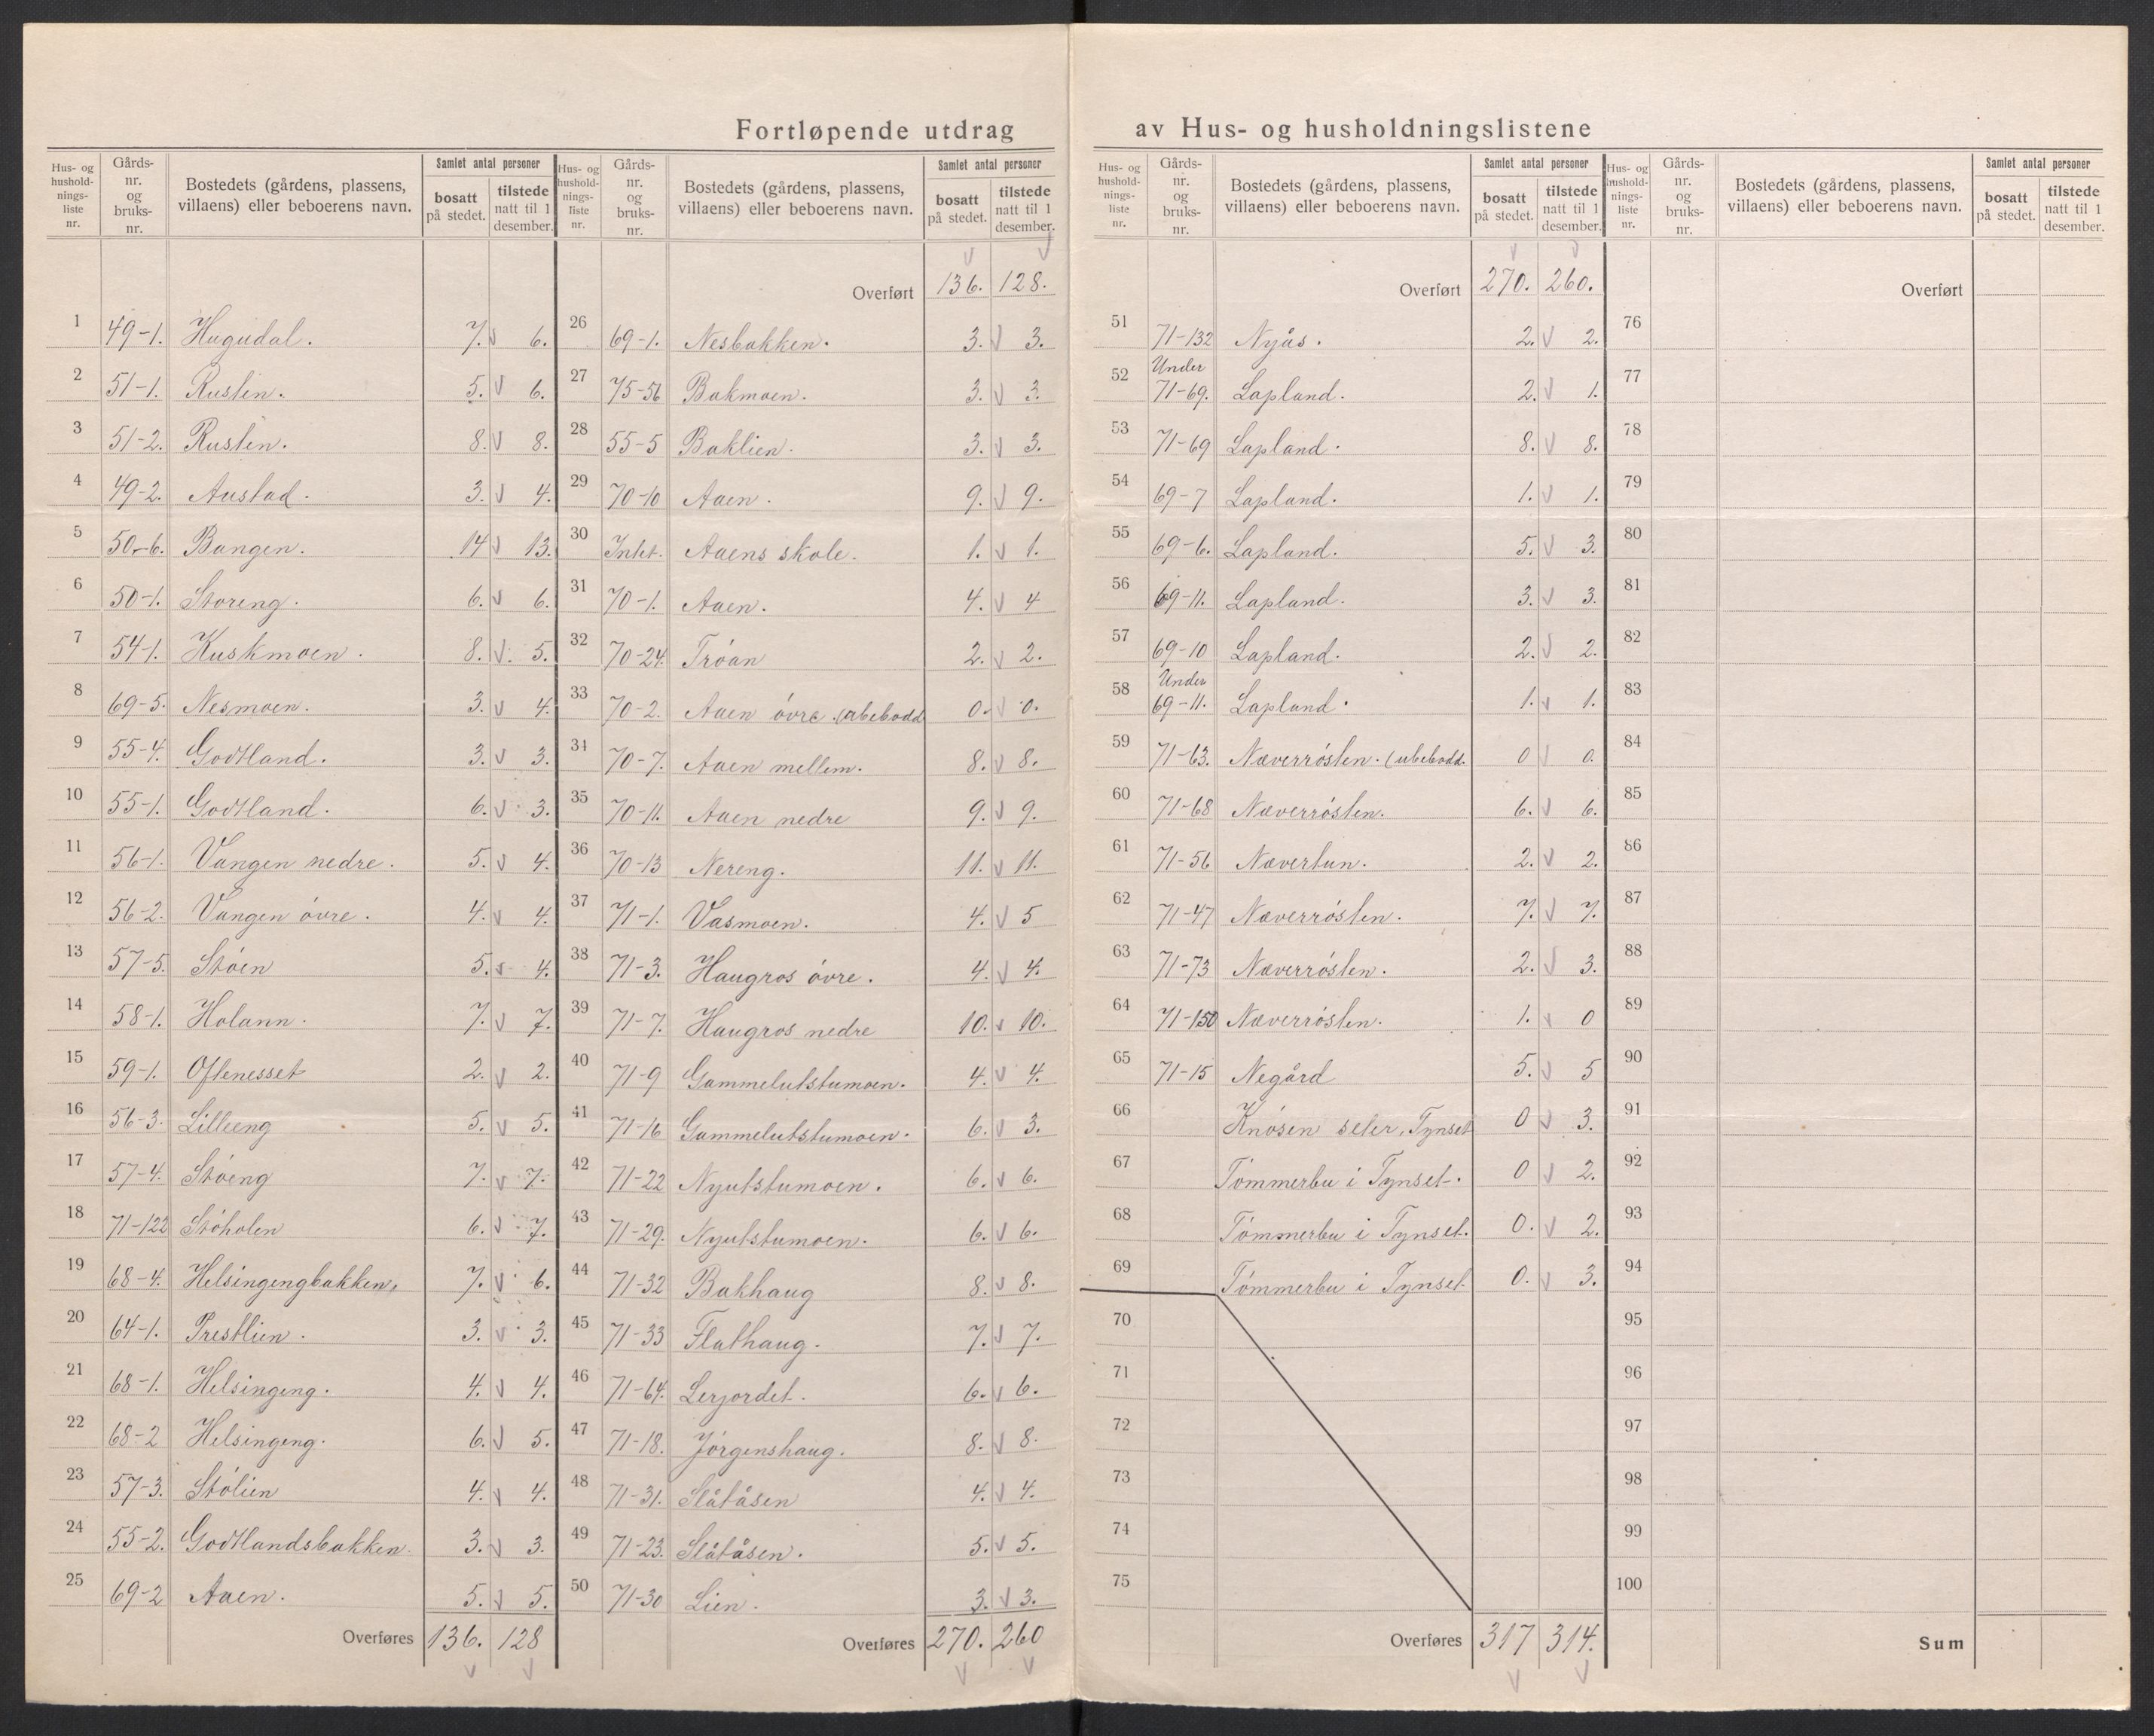 Fortløpende utdrag av Hus- og husholdningslistene
Hus- og husholdnings-liste nr. | Gårds-nr. og bruks-nr. | Bostedets (gårdens, plassens, villaens) eller beboerens navn. | Samlet antal personer | bosatt på stedet. | tilstede natt til 1 desember.
1 49-1. Hugudal. 7. v 6.
2 51-1. Rusten. 5. v 6.
3 51-2. Rusten. 8. v 8.
4 49-2. Austad. 3. v 4.
5 50-6. Bangen. 14 v 13.
6 50-1. Storeng. 6. v 6.
7 54-1. Kuskmoen. 8. v. 5.
8 69-5. Nesmoen. 3. v 4.
9 55-4. Godtland. 3. v 3.
10 55-1. Godtland. 6. v 3.
11 56-1. Vangen nedre. 5. v 4.
12 56-2. Vangen övre. 4. v 4.
13 57-5. Stöen 5. v 4.
14 58-1. Holann. 7. v 7.
15 59-1. Oftenesset 2. v 2.
16 56-3. Lilleeng 5. v 5.
17 57-4. Stöeng 7. v 7.
18 71-122 Stöholen 6. v 7.
19 68-4. Helsingengbakken. 7. v 6.
20 64-1. Prestlien. 3. v 3.
21 68-1. Helsingeng. 4. v 4.
22 68-2 Helsingeng. 6. v 5.
23 57-3. Stölien 4. v 4.
24 55-2. Godtlandsbakken. 3. v 3.
25 69-2 Aaen. 5. v 5.
Overføres 136. 128
Hus- og husholdnings-liste nr. | Gårds-nr. og bruks-nr. | Bostedets (gårdens, plassens, villaens) eller beboerens navn. | Samlet antal personer | bosatt på stedet. | tilstede natt til 1 desember.
Overført 136. 128.
26 69-1. Nesbakken. 3. v 3.
27 75-56 Bakmoen. 3. v 3.
28 55-5 Baklien. 3. v 3.
29 70-10 Aaen. 9. v 9.
30 Intet. Aaens skole. 1. v 1.
31 70-1. Aaen. 4. v 4
32 70-24. Tröan 2. v 2.
33 70-2. Aaen övre (ubebodd 0. v 0.
34 70-7. Aaen mellem. 8. v 8.
35 70-11. Aaen nedre 9. v 9.
36 70-13 Nereng. 11. v 11.
37 71-1. Vasmoen. 4. v 5
38 71-3. Haugros övre. 4. v 4.
39 71-7. Haugros nedre 10. v 10.
40 71-9 Gammelutstumoen. 4. v 4.
41 71-16 Gammelutstumoen. 6. v 3.
42 71-22 Nyutstumoen. 6. v 6.
43 71-29. Nyutstumoen. 6. v 6.
44 71-32 Bakhaug 8. v 8.
45 71-33 Flathaug. 7. v 7.
46 71-64. Lerjordet. 6. v 6.
47 71-18. Jörgenshaug. 8. v 8.
48 71-31. Slåtåsen 4. v 4.
49 71-23. Slåtåsen. 5. v 5.
50 71-30 Lien. 3. v 3.
Overføres 270. 260
Hus- og husholdnings-liste nr. | Gårds-nr. og bruks-nr. | Bostedets (gårdens, plassens, villaens) eller beboerens navn. | Samlet antal personer | bosatt på stedet. | tilstede natt til 1 desember.
Overført 270. 260.
51 71-132 Nyås. 2. v 2.
52 Under 71-69. Lapland. 2. v 1.
53 71-69 Lapland. 8. v 8.
54 69-7 Lapland. 1. v 1.
55 69-6. Lapland. 5. v 3.
56 69-11. Lapland. 3. v 3.
57 69-10 Lapland. 2. v 2.
58 Under 69-11. Lapland. 1. v 1.
59 71-63. Næverrösten. (ubebodd. 0 v 0.
60 71-68 Næverrösten. 6. v 6.
61 71-56 Nævertun. 2. v 2.
62 71-47 Næverrösten. 7. v 7.
63 71-73 Næverrösten. 2. v 3.
64 71-150 Næverrösten. 1. v 0
65 71-15 Negård 5. v 5
66 Knösen seter, Tynset 0 v 3.
67 Tömmerbu i Tynset. 0 v 2.
68 Tömmerbu i Tynset. 0. v 2.
69 Tömmerbu i Tynset 0. v 3.
70
71
72
73
74
75
Overføres 317 314.
Hus- og husholdnings-liste nr. | Gårds-nr. og bruks-nr. | Bostedets (gårdens, plassens, villaens) eller beboerens navn. | Samlet antal personer | bosatt på stedet. | tilstede natt til 1 desember.
Overført
76
77
78
79
80
81
82
83
84
85
86
87
88
89
90
91
92
93
94
95
96
97
98
99
100
Sum